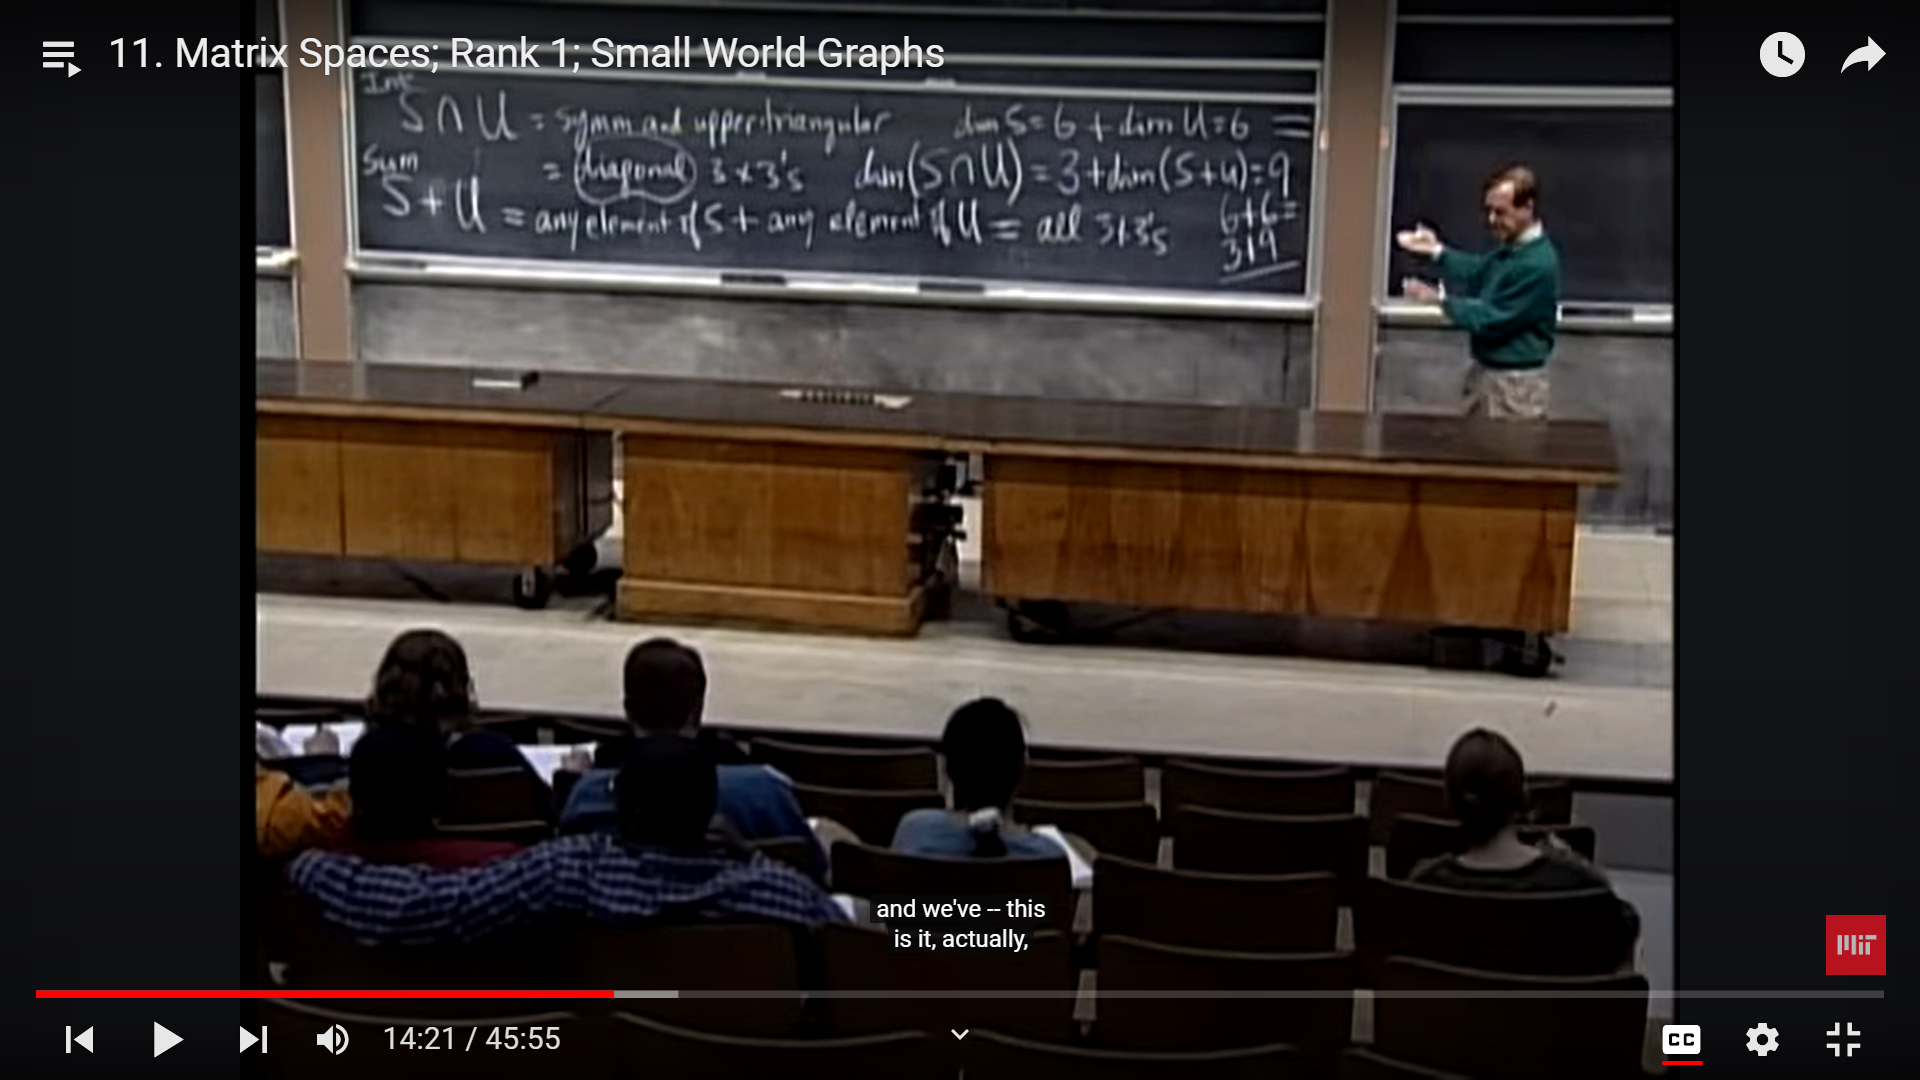 11. Matrix Spaces; Rank 1; Small World Graphs
Int
S ∩ U = symm and upper triangular dim S = 6 + dim U = 6 =
= diagonal 3 x 3's dim(S ∩ U) = 3 + dim(S+U) = 9
Sum
S + U = any element of S + any element of U = all 3x3's
6+6=
3+9
and we've -- this
is it, actually,
MIT
14:21 / 45:55
CC